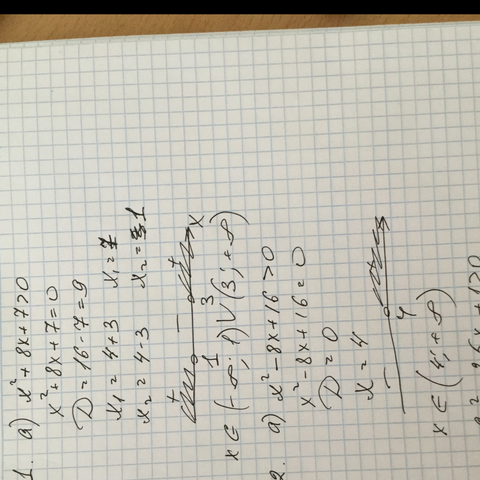 1. a) x² + 8x + 7 > 0
x² + 8x + 7 = 0
D = 16 - 7 = 9
x₁ = 4 + 3 x₁ = 7
x₂ = 4 - 3 x₂ = 1
+ - + x
1 3
x ∈ (-∞; 1) ∪ (3; +∞)
2. a) x² - 8x + 16 > 0
x² - 8x + 16 = 0
D = 0
x = 4
- +
4
x ∈ (4; +∞)